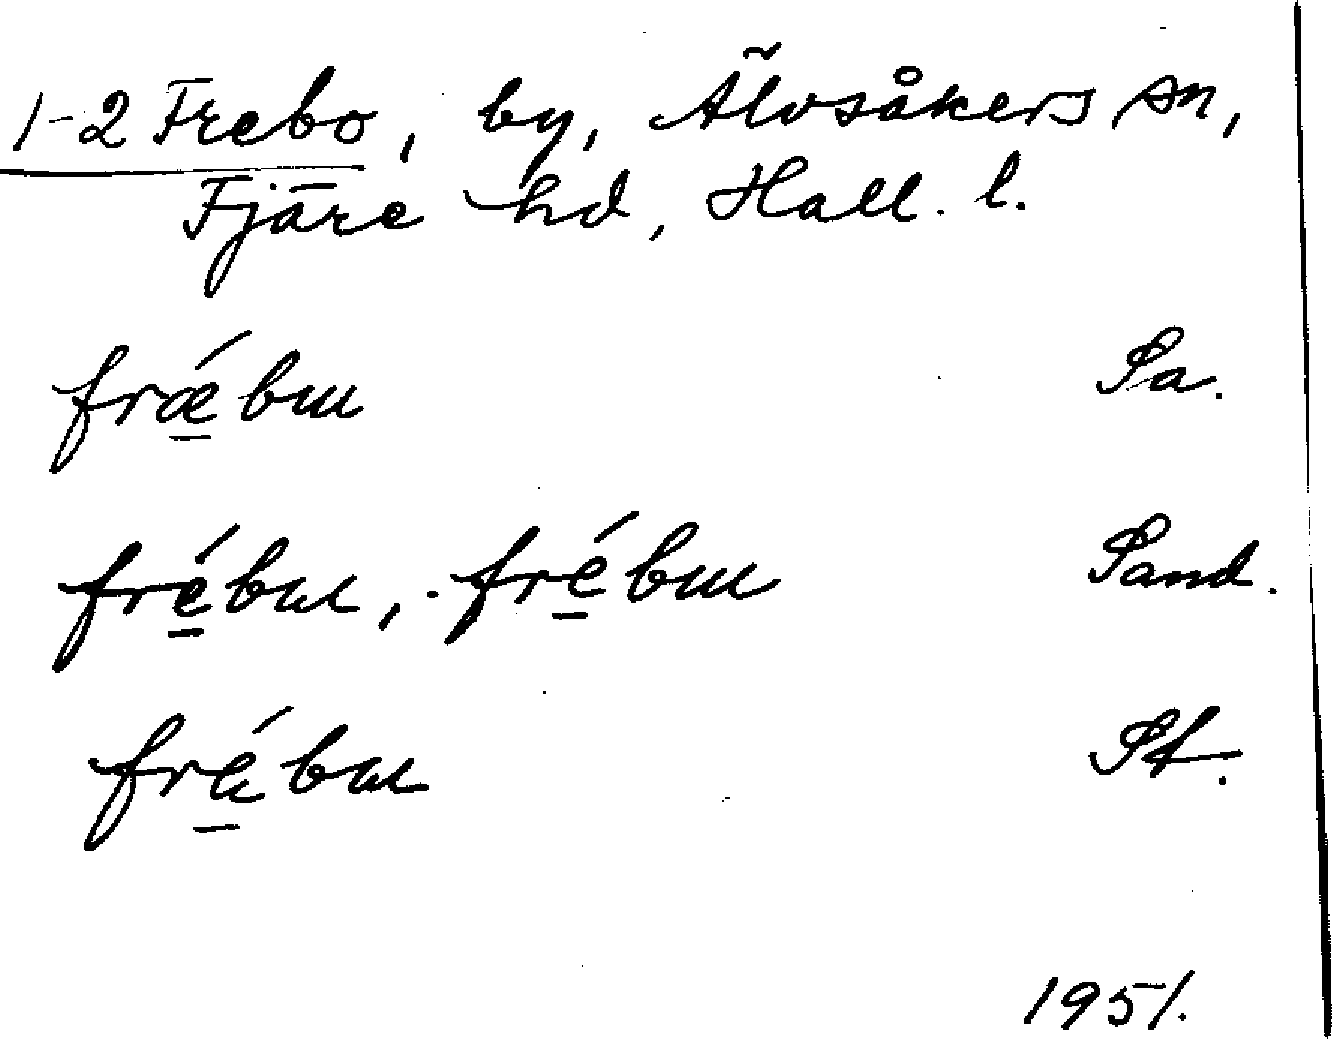 1-2 Frebo, by, Älvsåkers sn,
Fjäre hd, Hall. l.
frǽ̱bɯ Sa.
fré̱bɯ, fré̱bɯ Sand.
fré̱bɯ St.
1951.